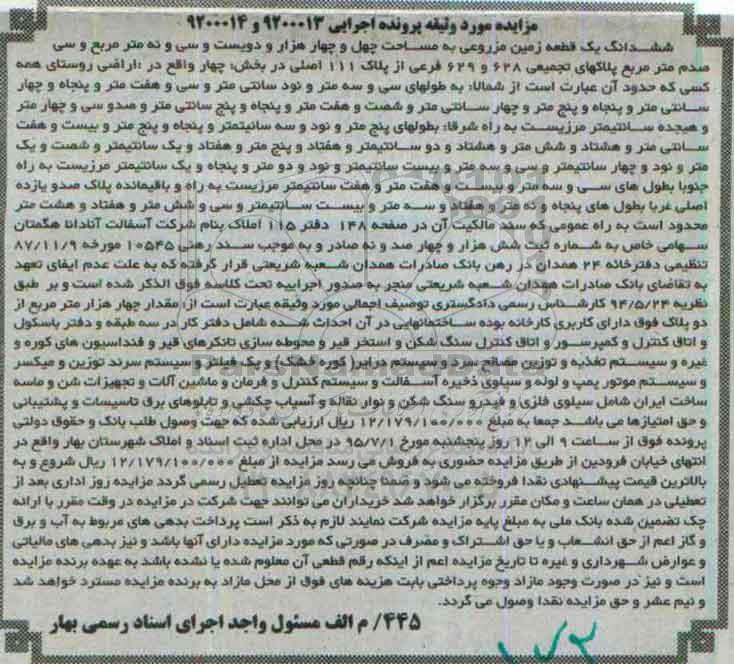 مزایده مورد وثیقه پرونده اجرایی ۹۲۰۰۰۱۳ و ۹۲۰۰۰۱۴
ششدانگ یک قطعه زمین مزروعی به مساحت چهل و چهار هزار و دویست و سی و نه متر مربع و سی
صدم متر مربع پلاکهای تجمیعی ۶۲۸ و ۶۲۹ فرعی از پلاک ۱۱۱ اصلی در بخش: چهار واقع در :اراضی روستای همه
کسی که حدود آن عبارت است از شمالا: به طولهای سی و سه متر و نود سانتی متر و سی و هفت متر و پنجاه و چهار
سانتی متر و پنجاه و پنج متر و چهار سانتی متر و شصت و هفت متر و پنجاه و پنج سانتی متر و صدو سی و چهار متر
و هیجده سانتیمتر مرزیست به راه شرقا: بطولهای پنج متر و نود و سه سانیتمتر و پنجاه و پنج متر و بیست و هفت
سانتی متر و هشتاد و شش متر و هشتاد و دو سانتیمتر و هفتاد و پنج متر و هفتاد و یک سانتیمتر و شصت و یک
متر و نود و چهار سانتیمتر و سی و سه متر و بیست سانتیمتر و نود و دو متر و پنجاه و یک سانتیمتر مرزیست به راه
جنوبا بطول های سی و سه متر و بیست و هفت متر و هفت سانتیمتر مرزیست به راه و باقیمانده پلاک صدو یازده
اصلی غربا بطول های پنجاه و نه متر و هفتاد و سه متر و بیست سانتیمتر و سی و شش متر و هفتاد و هشت متر
محدود است به راه عمومی که سند مالکیت آن در صفحه ۱۴۸ دفتر ۱۱۵ املاک بنام شرکت آسفالت آنادانا هگمتان
سهامی خاص به شماره ثبت شش هزار و چهار صد و نه صادر و به موجب سند رهنی ۱۰۵۴۵ مورخه ۸۷/۱۱/۹
تنظیمی دفترخانه ۲۴ همدان در رهن بانک صادرات همدان شعبه شریعتی قرار گرفته که به علت عدم ایفای تعهد
به تقاضای بانک صادرات همدان شعبه شریعتی منجر به صدور اجراییه تحت کلاسه فوق الذکر شده است و بر طبق
نظریه ۹۴/۵/۲۴ کارشناس رسمی دادگستری توصیف اجمالی مورد وثیقه عبارت است از: مقدار چهار هزار متر مربع از
دو پلاک فوق دارای کاربری کارخانه بوده ساختمانهایی در آن احداث شده شامل دفتر کار در سه طبقه و دفتر باسکول
و اتاق کنترل و کمپرسور و اتاق کنترل سنگ شکن و استخر قیر و محوطه سازی تانکرهای قیر و فنداسیون های کوره و
غیره و سیستم تغذیه و توزین مصالح سرد و سیستم درایر( کوره خشک) و بک فیلتر و سیستم سرند توزین و میکسر
و سیستم موتور پمپ و لوله و سیلوی ذخیره آسفالت و سیستم کنترل و فرمان و ماشین آلات و تجهیزات شن و ماسه
ساخت ایران شامل سیلوی فلزی و فیدر و سنگ شکن و نوار نقاله و آسیاب چکشی و تابلوهای برق تاسیسات و پشتیبانی
و حق امتیازها می باشد جمعا به مبلغ ۱۲/۱۷۹/۱۰۰/۰۰۰ ریال ارزیابی شده که جهت وصول طلب بانک و حقوق دولتی
پرونده فوق از ساعت ۹ الی ۱۲ روز پنجشنبه مورخ ۹۵/۷/۱ در محل اداره ثبت اسناد و املاک شهرستان بهار واقع در
انتهای خیابان فرودین از طریق مزایده حضوری به فروش می رسد مزایده از مبلغ ۱۲/۱۷۹/۱۰۰/۰۰۰ ریال شروع و به
بالاترین قیمت پیشنهادی نقدا فروخته می شود و ضمنا چنانچه روز مزایده تعطیل رسمی گردد مزایده روز اداری بعد از
تعطیلی در همان ساعت و مکان مقرر برگزار خواهد شد خریداران می توانند جهت شرکت در مزایده در وقت مقرر با ارائه
چک تضمین شده بانک ملی به مبلغ پایه مزایده شرکت نمایند لازم به ذکر است پرداخت بدهی های مربوط به آب و برق
و گاز اعم از حق انشعاب و یا حق اشتراک و مصرف در صورتی که مورد مزایده دارای آنها باشد و نیز بدهی های مالیاتی
و عوارض شهرداری و غیره تا تاریخ مزایده اعم از اینکه رقم قطعی آن معلوم شده یا نشده باشد به عهده برنده مزایده
است و نیز در صورت وجود مازاد وجوه پرداختی بابت هزینه های فوق از محل مازاد به برنده مزایده مسترد خواهد شد
و نیم عشر و حق مزایده نقدا وصول می گردد.
۴۴۵/ م الف مسئول واحد اجرای اسناد رسمی بهار